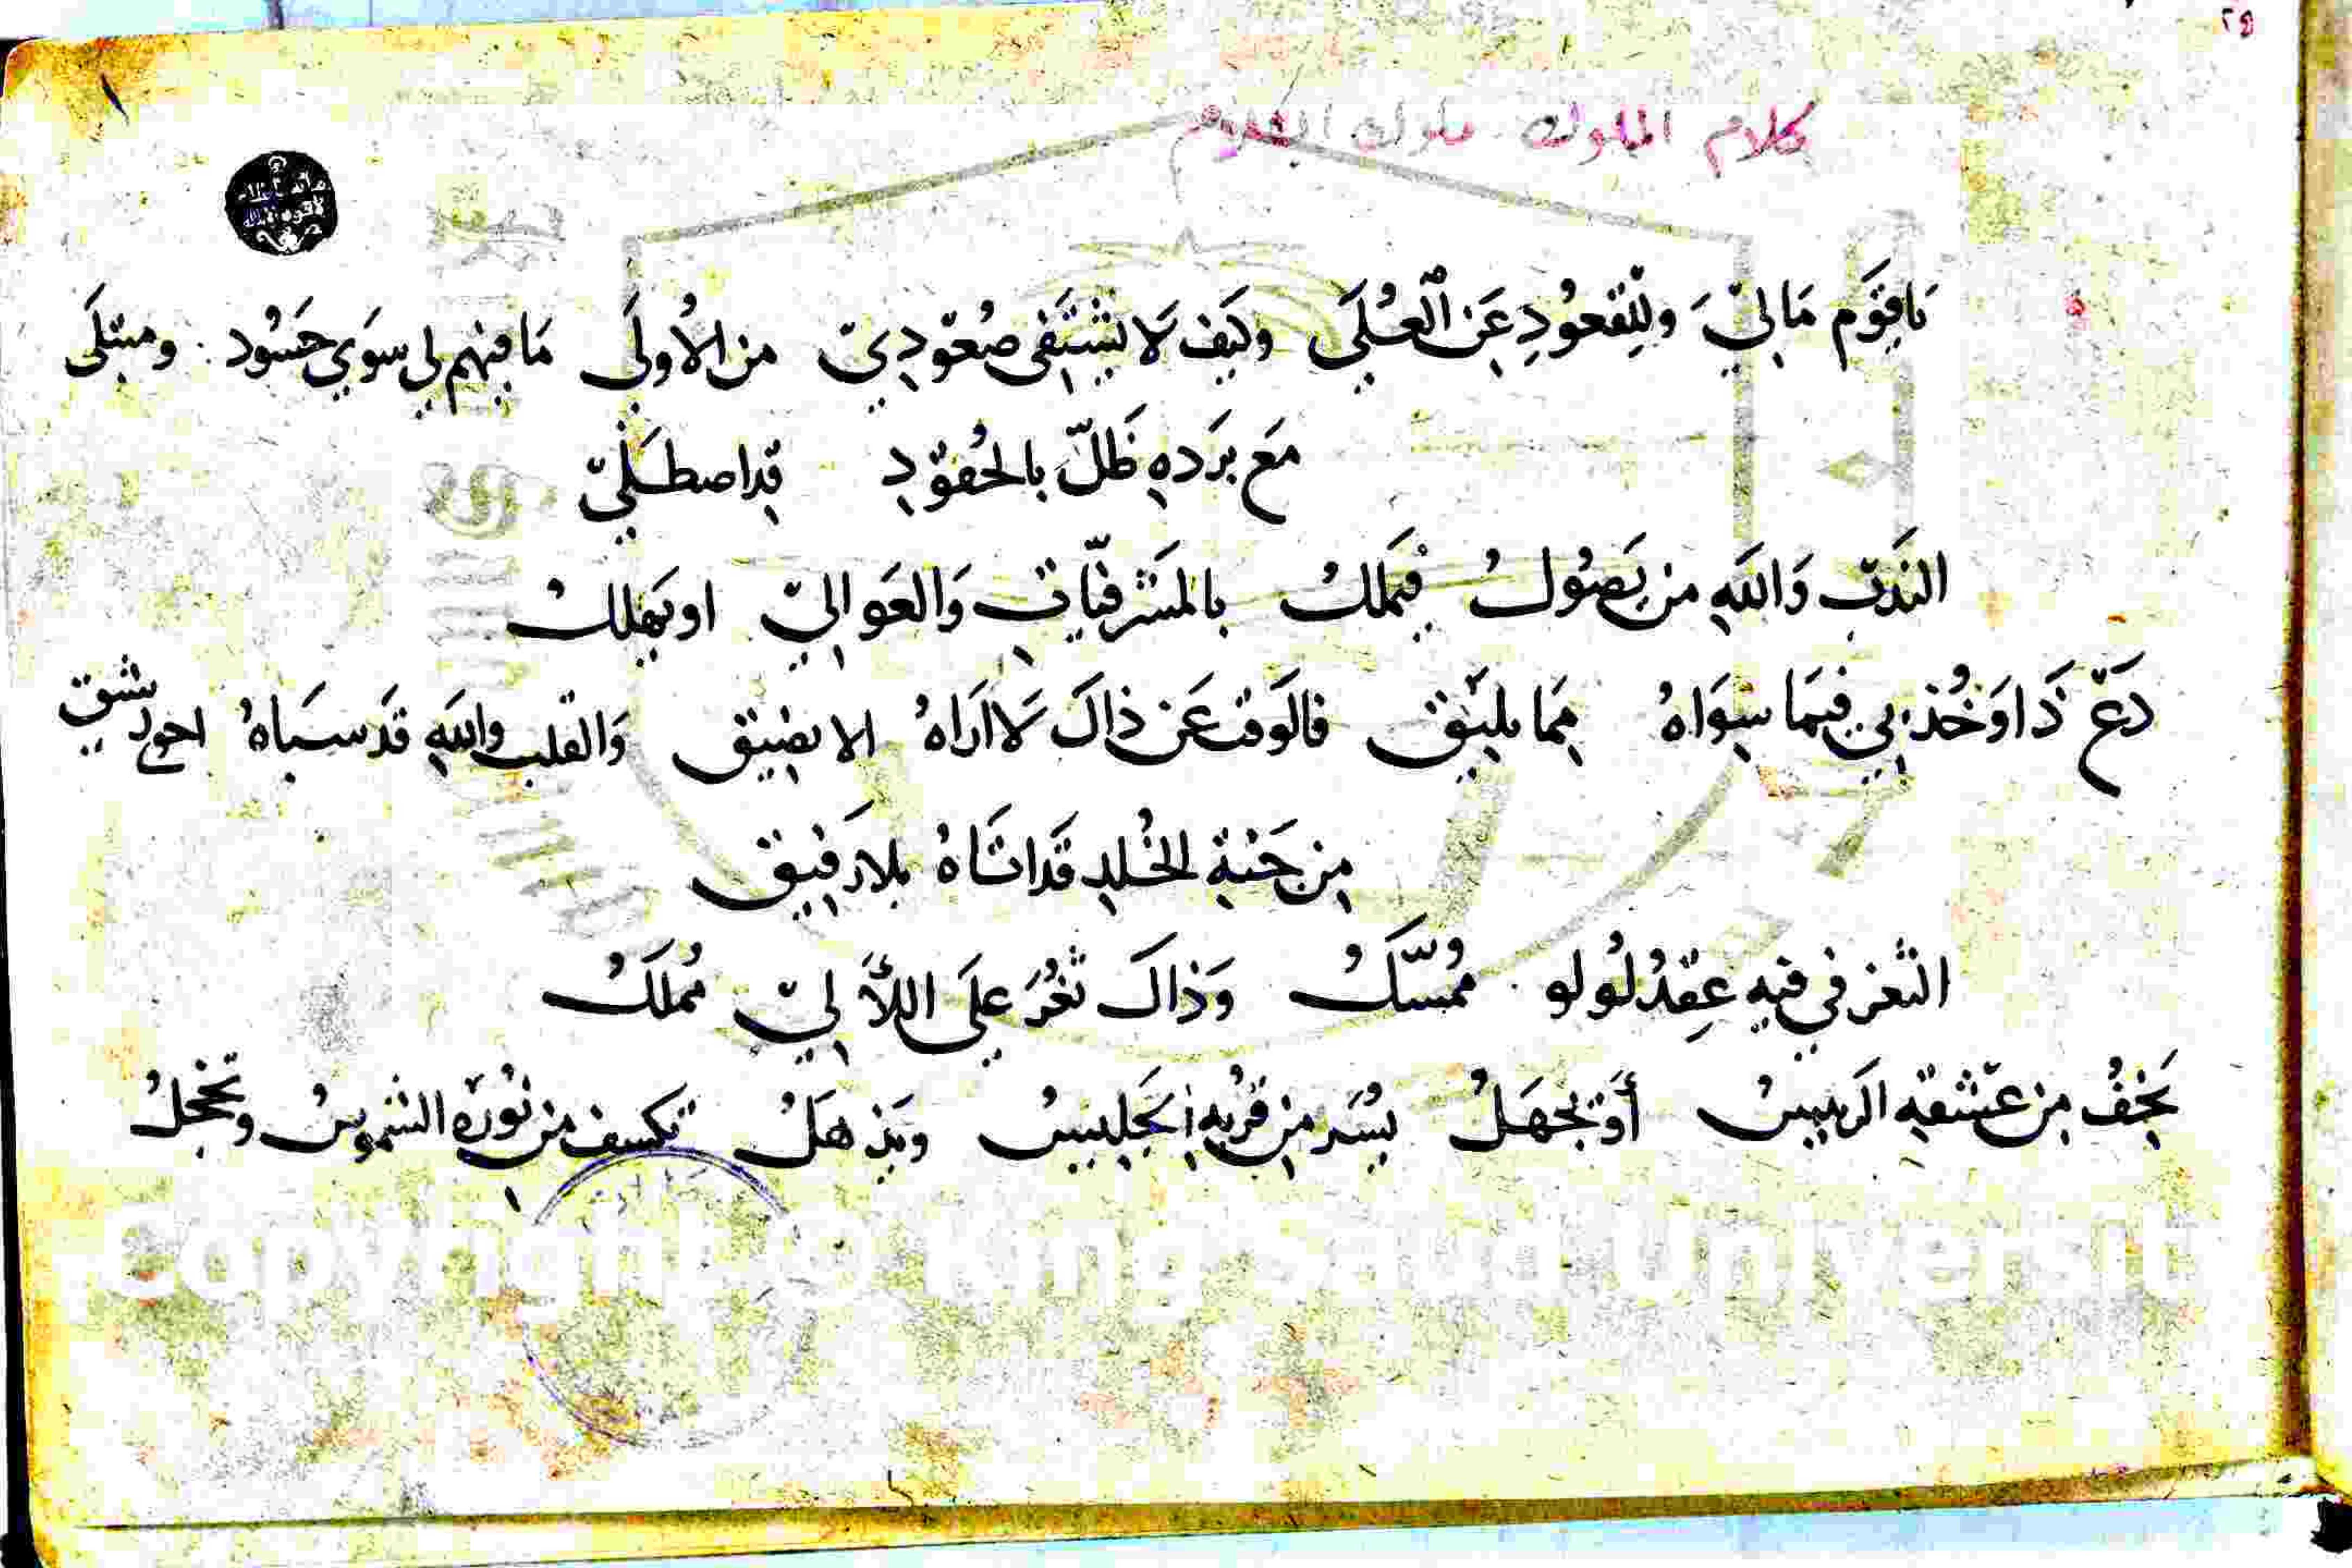 ٢٥
كلام الملوك ملوك الكلام
يَاقَوْم مَالِيْ وللِقُعُودِ عَن ٱلعُلَى وكيَف لَا يَشْتَفى صُعُودِيْ من الأُولَى مَا فيهم لي سوَي حَسُود . ومبتلَى
مَع بَردهِ ظَلّ بالحُقوْدِ قداصطَلَيْ
النَدبْ وَاللهِ من يَصُولُ فيَملكُ بالمَشرفيّاتِ وَالعَوالِيْ اويَهلكُ
دَعْ ذَا وَخُذ بي فيمَا سِوَاهُ مِمَا يليَقْ فالَوقت عَن ذاكَ لَا ارَاهُ الا يضيق وَالقلب واللهِ قَد سبَاهُ احوي رشيق
مِن جَنةِ الخُلدِ قَداتَاهُ بلارَفيق
الثغر في فيهِ عِقدُ لُولو . مُمسّكُ وَذاكَ ثغُرَ علَى اللأٰليْ مُملَكُ
يَخفُ مِن عَشقهِ الرَييسُ أوَيجهَلُ يُسَر مِن قُربهِ الجَليسُ ويَذهَلُ تكسف من نُورَهِ الشموسُ وتخجلُ
Copyright © King Saud Universit